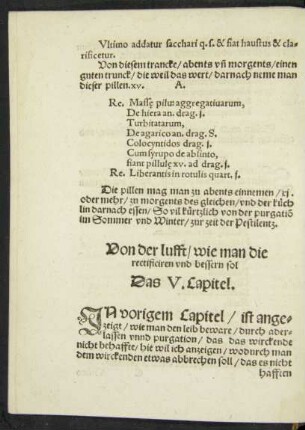 Vltimo addatur sacchari q. s. & fiat haustus & cla-
rificetur.
Von diesem trancke / abents vñ morgents / einen
guten trunck / die weil das wert / darnach neme man
dieser pillen. xv. A.
Re. Massę pilu: aggregatiuarum,
De hiera an. drag. j.
Turbitatarum,
De agarico an. drag. S.
Colocyntidos drag. j.
Cum syrupo de absinto,
fiant pillulę xv. ad drag. j.
Re. Liberantis in rotulis quart. j.
Die pillen mag man zu abents einnemen / xj.
oder mehr / zu morgents des gleichen / vnd der küch
lin darnach essen / So vil kürtzlich von der purgatiō
im Sommer vnd Winter / zur zeit der Pestilentz.
Von der lufft / wie man die
rectificiren vnd bessern sol
Das V. Capitel.
IN vorigem Capitel / ist ange-
zeigt / wie man den leib beware / durch ader-
lassen vnnd purgation / das das wirckende
nicht behaffte / hie wil ich anzeigen / wodurch man
dem wirckenden etwas abbrechen soll / das es nicht
hafften